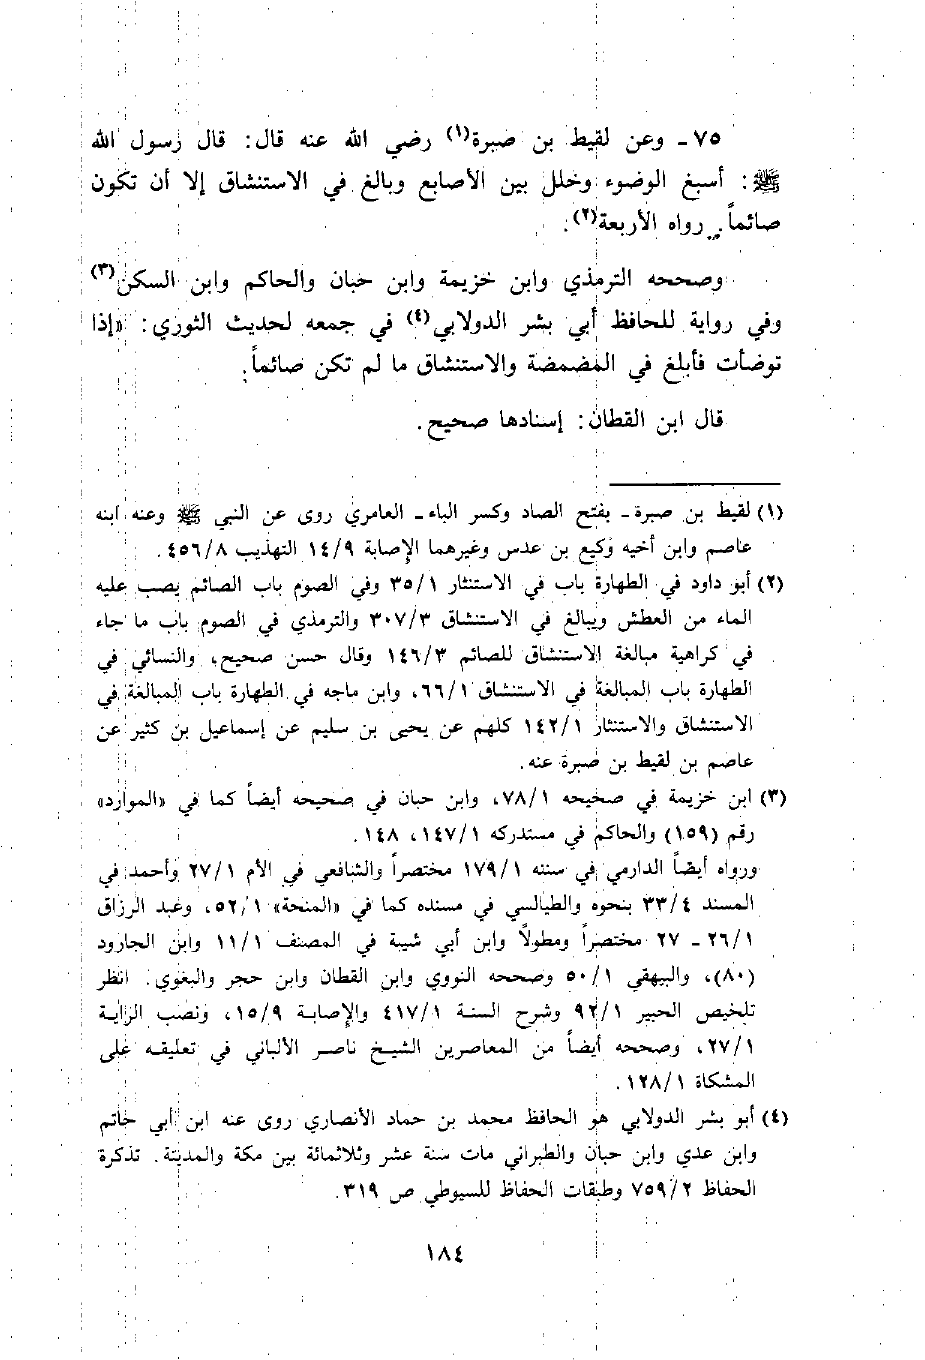 ٧٥ ـ وعن لقيط بن صبرة(١) رضي الله عنه قال: قال رسول الله
ﷺ: أسبغ الوضوء وخلل بين الأصابع وبالغ في الاستنشاق إلا أن تكون
صائماً. رواه الأربعة(٢).
وصححه الترمذي وابن خزيمة وابن حبان والحاكم وابن السكن(٣)
وفي رواية للحافظ أبي بشر الدولابي(٤) في جمعه لحديث الثوري: «إذا
توضأت فأبلغ في المضمضة والاستنشاق ما لم تكن صائماً.
قال ابن القطان: إسنادها صحيح.
(١) لقيط بن صبرة ـ بفتح الصاد وكسر الباء ـ العامري روى عن النبي ﷺ وعنه ابنه
عاصم وابن أخيه وكيع بن عدس وغيرهما الإصابة ١٤/٩ التهذيب ٤٥٦/٨.
(٢) أبو داود في الطهارة باب في الاستنثار ٣٥/١ وفي الصوم باب الصائم يصب عليه
الماء من العطش ويبالغ في الاستنشاق ٣٠٧/٣ والترمذي في الصوم باب ما جاء
في كراهية مبالغة الاستنشاق للصائم ١٤٦/٣ وقال حسن صحيح، والنسائي في
الطهارة باب المبالغة في الاستنشاق ٦٦/١، وابن ماجه في الطهارة باب المبالغة في
الاستنشاق والاستنثار ١٤٢/١ كلهم عن يحيى بن سليم عن إسماعيل بن كثير عن
عاصم بن لقيط بن صبرة عنه.
(٣) ابن خزيمة في صحيحه ٧٨/١، وابن حبان في صحيحه أيضاً كما في «الموارد»
رقم (١٥٩) والحاكم في مستدركه ١٤٧/١، ١٤٨.
ورواه أيضاً الدارمي في سننه ١٧٩/١ مختصراً والشافعي في الأم ٢٧/١ وأحمد في
المسند ٣٣/٤ بنحوه والطيالسي في مسنده كما في «المنحة» ٥٢/١، وعبد الرزاق
٢٦/١ ـ ٢٧ مختصراً ومطولاً وابن أبي شيبة في المصنف ١١/١ وابن الجارود
(٨٠)، والبيهقي ٥٠/١ وصححه النووي وابن القطان وابن حجر والبغوي. انظر
تلخيص الحبير ٩٢/١ وشرح السنة ٤١٧/١ والإصابة ١٥/٩، ونصب الراية
٢٧/١، وصححه أيضاً من المعاصرين الشيخ ناصر الألباني في تعليقه على
المشكاة ١٢٨/١.
(٤) أبو بشر الدولابي هو الحافظ محمد بن حماد الأنصاري روى عنه ابن أبي حاتم
وابن عدي وابن حبان والطبراني مات سنة عشر وثلاثمائة بين مكة والمدينة. تذكرة
الحفاظ ٧٥٩/٢ وطبقات الحفاظ للسيوطي ص ٣١٩.
١٨٤